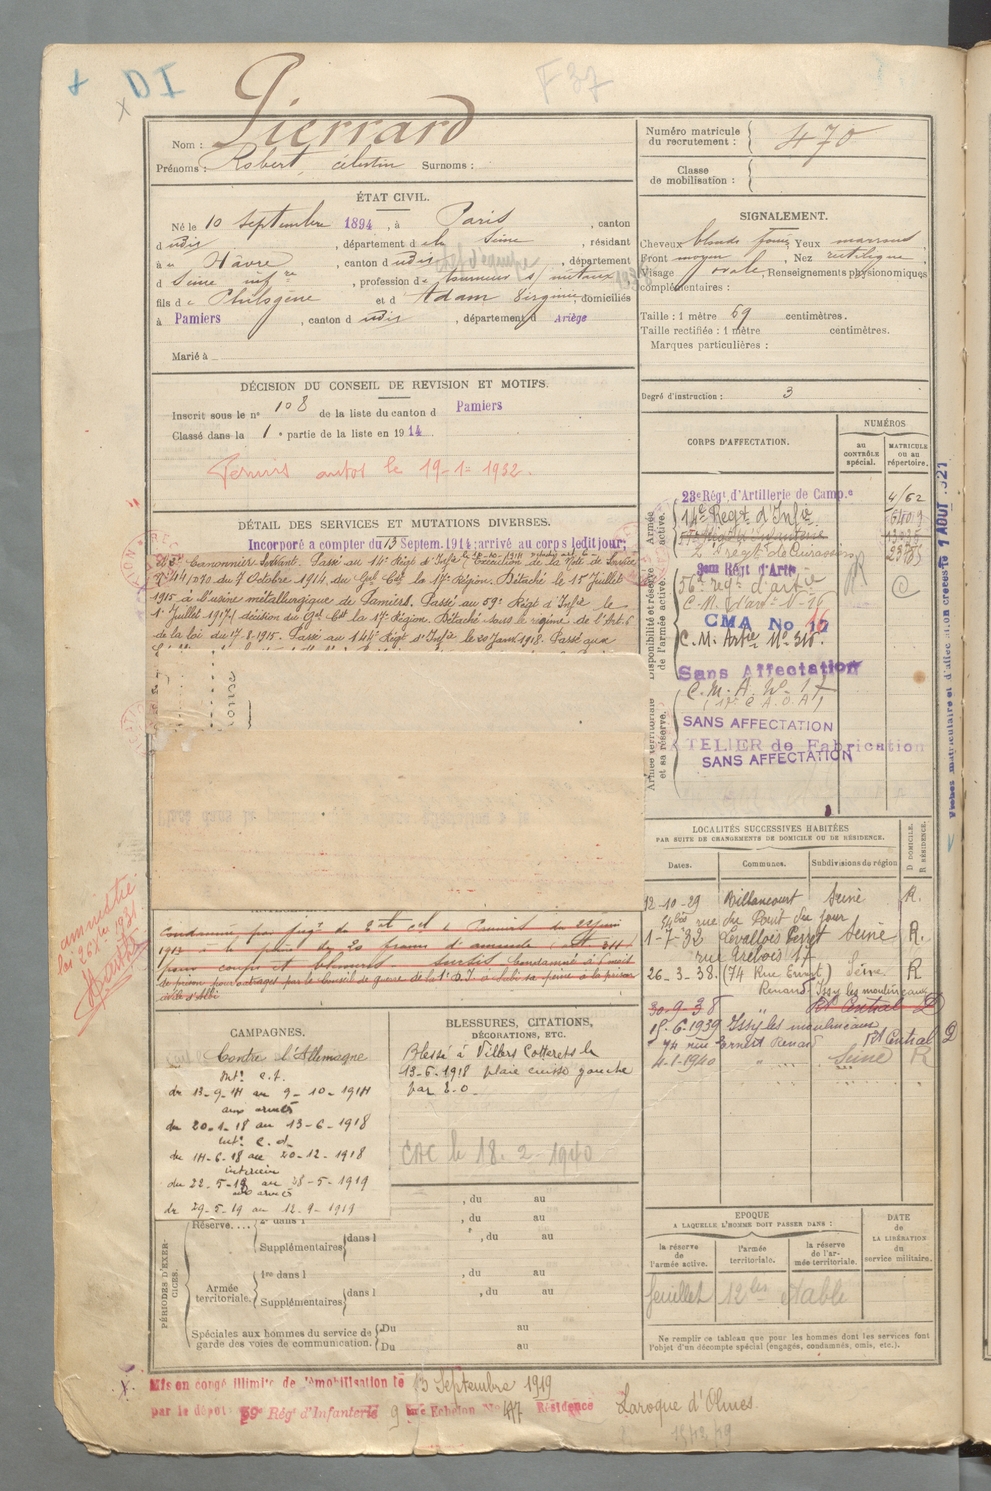 DI
F 37
Nom : Pierrard
Prénoms : Robert, célestin Surnoms :
Numéro matricule du recrutement : 470
Classe de mobilisation :
ÉTAT CIVIL.
Né le 10 septembre 1894, à Paris, canton
d udis, département d e la Seine, résidant
à u Hâvre, canton d udis, département
d Seine infre, profession de tourneur s/ métaux
fils de Philogène et d Adam Virginie, domiciliés
à Pamiers, canton d udis, département d Ariège
Marié à
SIGNALEMENT.
Cheveux blonds foncé Yeux marrons,
Front moyen, Nez rectiligne,
Visage ovale, Renseignements physionomiques
complémentaires :
Taille : 1 mètre 69 centimètres.
Taille rectifiée : 1 mètre centimètres.
Marques particulières :
Degré d'instruction : 3
DÉCISION DU CONSEIL DE REVISION ET MOTIFS.
Inscrit sous le n° 108 de la liste du canton d Pamiers
Classé dans la 1e partie de la liste en 1914
Permis autos le 19-1-1932.
DÉTAIL DES SERVICES ET MUTATIONS DIVERSES.
Incorporé à compter du 13 Septem. 1914; arrivé au corps ledit jour;
Canonnier Servant. Passé au 14e Régt d'Infie Exécution de la Note de Service
du 7 Octobre 1914 du Gal Cdt la 17e Région. Détaché le 15 Juillet
1915 à l'usine métallurgique de Pamiers. Passé au 59e Régt d'Infie le
1er Juillet 1917 (décision du Gal Cdt la 17e Région. Détaché sous le régime de l'Art. 6
de la loi du 17.8.1915. Passé au 144e Régt d'Infie le 20 Janv 1918. Passé aux
CORPS D'AFFECTATION.
NUMÉROS
au CONTRÔLE spécial.
MATRICULE ou au répertoire.
Armée active.
23e Régt d'Artillerie de Camp.e 4/62
14e Régt d'Infie
2e régt de Cuirassiers
Disponibilité et réserve de l'armée active.
Régt d'Artie
56e régt d'artie
CMA No
C. M. Artie No 315.
Sans Affectation
Armée territoriale et sa réserve.
C. M. A. No. 17
SANS AFFECTATION
ATELIER de Fabrication
SANS AFFECTATION
LOCALITÉS SUCCESSIVES HABITÉES
PAR SUITE DE CHANGEMENTS DE DOMICILE OU DE RÉSIDENCE.
Dates. Communes. Subdivisions de région D. DOMICILE. R. RÉSIDENCE.
12-10-29 Billancourt Seine R.
54bis rue du Point du jour
1-7-32 Levallois Perret Seine R.
26-3-38. (74 Rue Ernest) Seine. R
Renand Issy les moulineaux
30-9-38 " Rt Central D
15-6-1939 Issy les moulineaux
74 rue Ernest Renan Rt Central D
4-1-1940 " Seine R
amnistie
loi 26 Xbre 1931
Condamné par jugt du
1913 à la peine de 20 francs d'amende
pour coups et blessures sursis Condamné à 6 mois
de prison pour outrages par le Conseil de guerre de la
civile d'Albi
CAMPAGNES.
Contre l'Allemagne
Intr c.d.
du 13-9-14 au 9-10-1914
aux armées
du 20-1-18 au 13-6-1918
Intr c.d.
du 14-6-18 au 20-12-1918
intérieur
du 22-5-19 au 28-5-1919
aux armées
du 29-5-19 au 12-9-1919
BLESSURES, CITATIONS,
DÉCORATIONS, ETC.
Blessé à Villers Cotterets le
13-6-1918 plaie cuisse gauche
par E.O.
CAC le 18-2-1940
PÉRIODES D'EXERCICES.
Réserve.... 2e dans l , du au
Supplémentaires dans l , du au
Armée territoriale. 1re dans l , du au
Supplémentaires dans l , du au
Spéciales aux hommes du service de garde des voies de communication. Du au
Du au
EPOQUE
A LAQUELLE L'HOMME DOIT PASSER DANS :
la réserve de l'armée active.
l'armée territoriale.
la réserve de l'armée territoriale.
DATE DE LA LIBÉRATION du service militaire.
feuillet 12 bis établi
Ne remplir ce tableau que pour les hommes dont les services font
l'objet d'un décompte spécial (engagés, condamnés, omis, etc.).
Mis en congé illimité de démobilisation le 13 Septembre 1919
par le dépôt 59e Régt d'Infanterie 9 Echelon No 417 Résidence Laroque d'Olmes